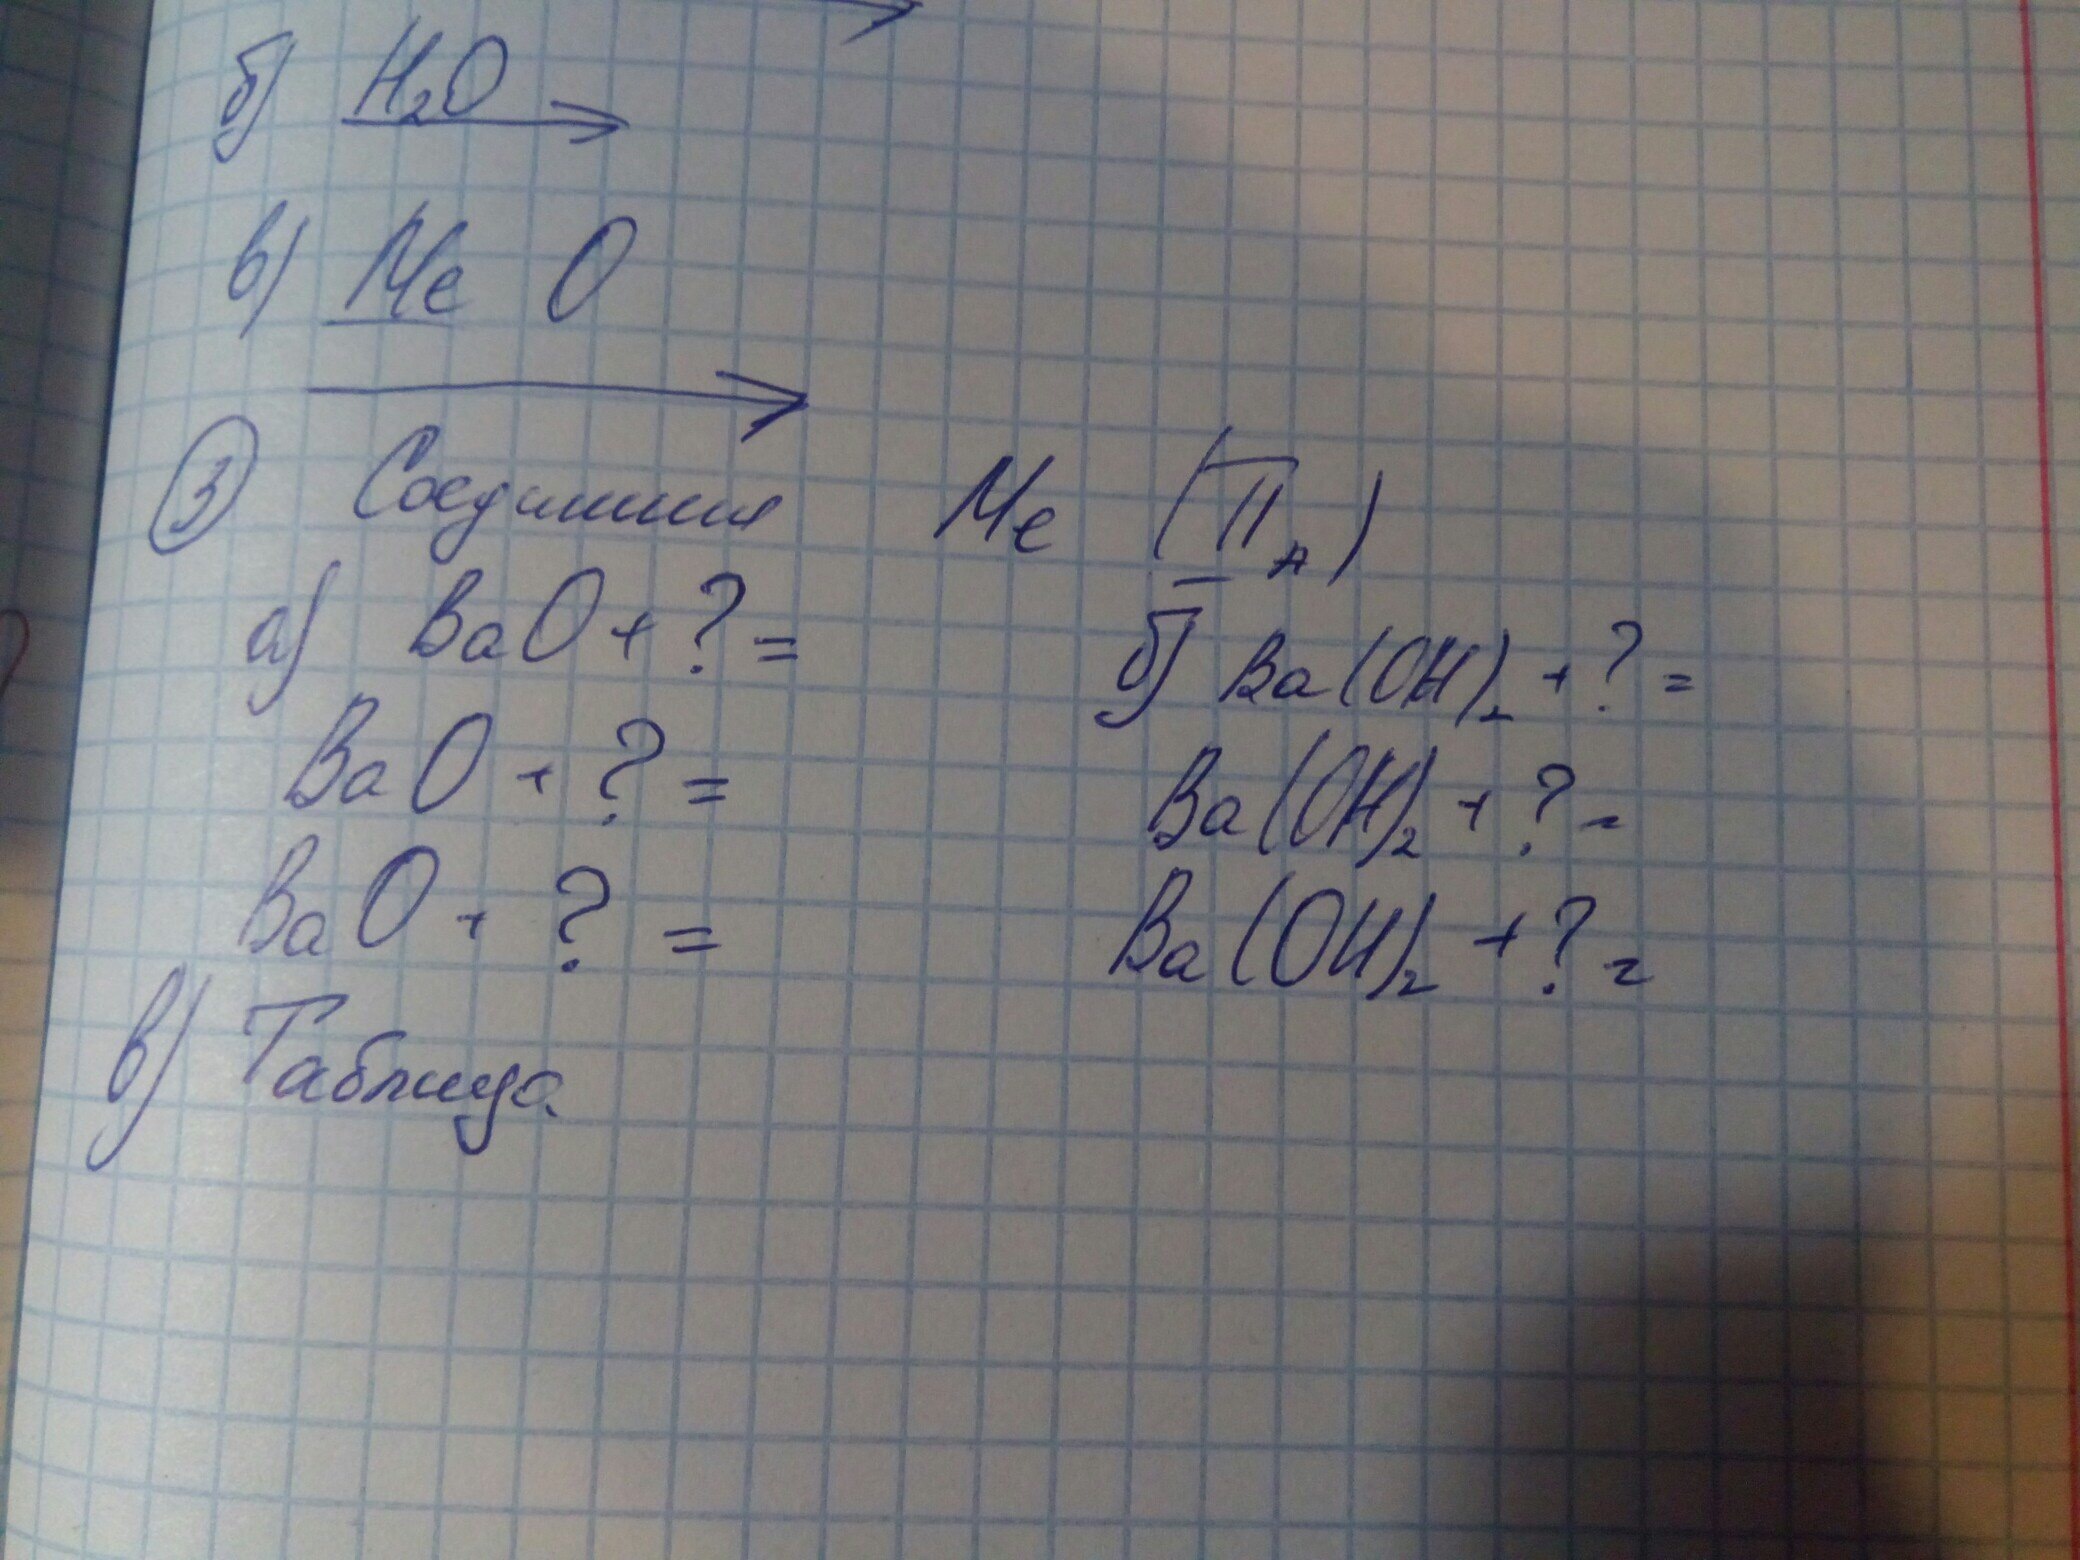 б) H₂O
в) Me O
③ Соединения Me (II A)
а) BaO + ? =
BaO + ? =
BaO + ? =
б) Ba(OH)₂ + ? =
Ba(OH)₂ + ? =
Ba(OH)₂ + ? =
в) Таблица